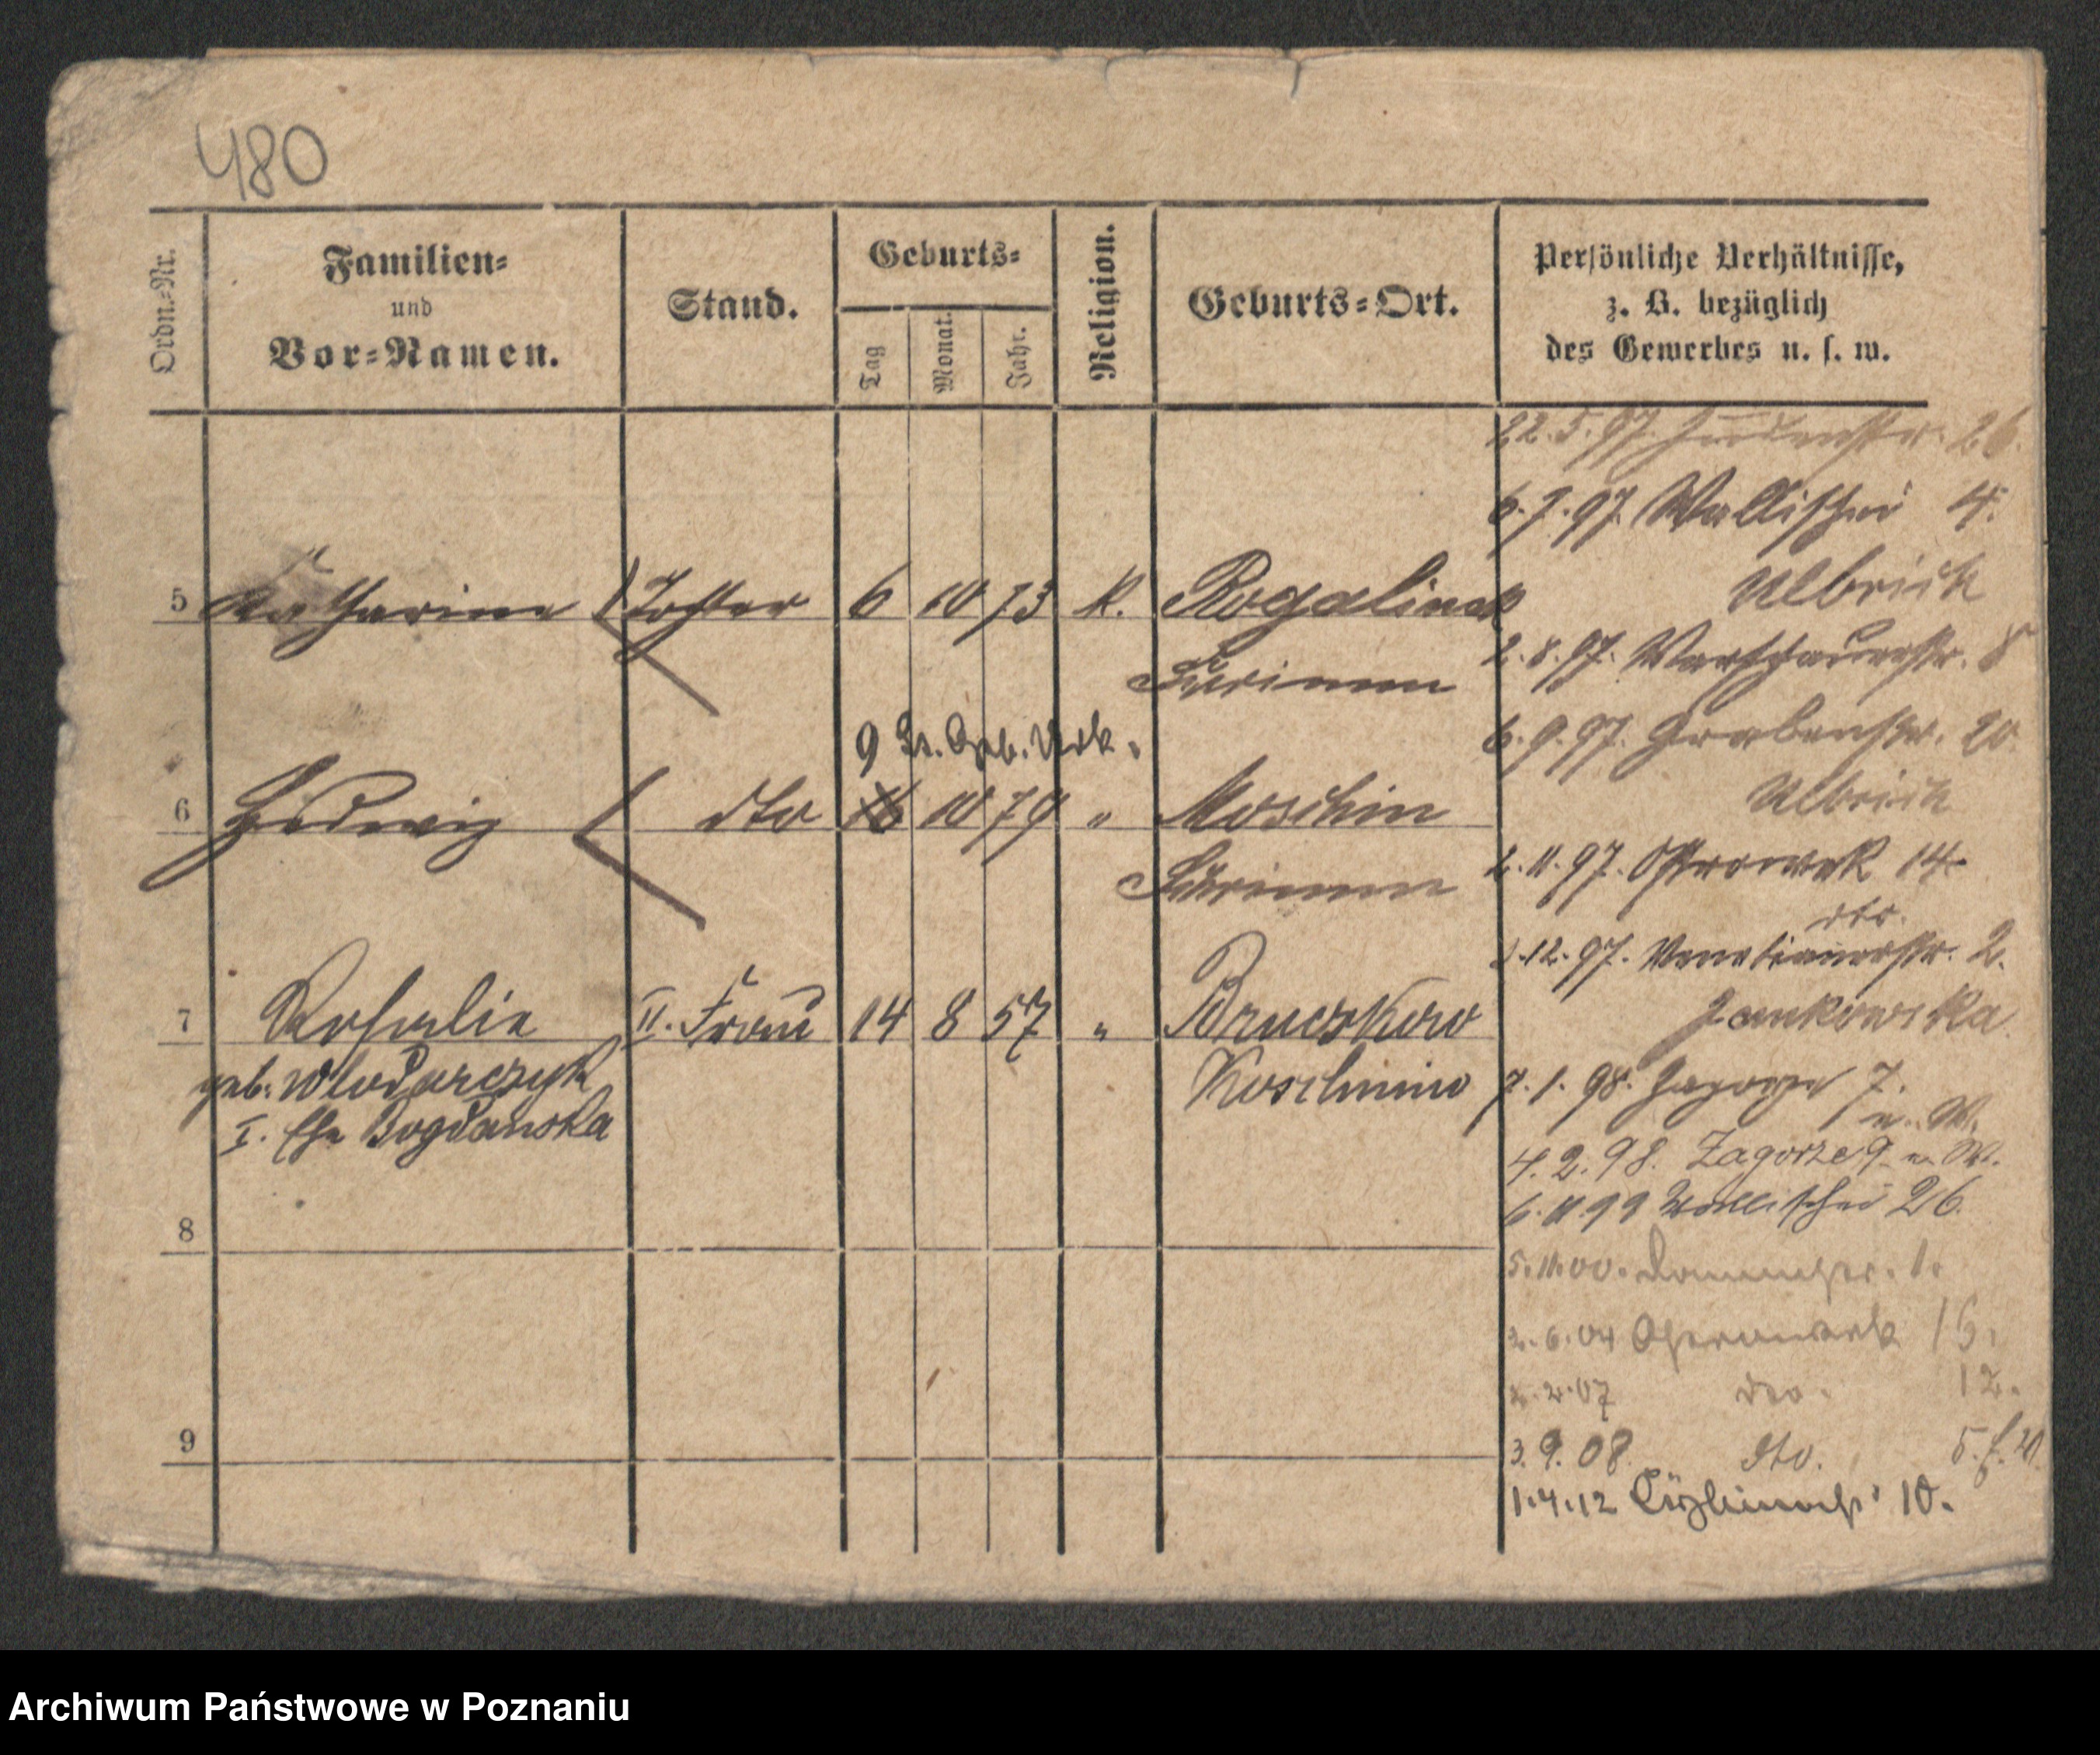 480
Ordn.-Nr.
Familien-
und
Vor-Namen.
Stand.
Geburts-
Tag
Monat.
Jahr.
Religion.
Geburts-Ort.
Persönliche Verhältnisse,
z. B. bezüglich
des Gewerbes u. s. w.
22.5.97 Judenstr. 26.
6.7.97. Wallischei 4.
Ulbrich
5 Katharine Tochter 6 10 73 K. Rogalinek
Schrimm
2.8.97. Warschauerstr. 8
6.9.97. Grabenstr. 20
Ulbrich
9 Geb. Urk.
6 Hedwig dto 16 10 79 " Moschin
Schrimm
2.11.97. Ostrowek 14.
dto.
12.97. Venetianerstr. 2.
Jankowska
7 Rosalie II. Frau 14 8 57 "
geb. Wlodarczyk
I. Ehe Bogdanska
Koschmin
7.1.98. Zagorze 7.
u. W.
4.2.98. Zagorze 9 u. W.
6.11 99 Wallischei 26.
8
5.11.00. Dammstr. 1.
2.6.04 Ostrowek 15.
2.07 dto. 12.
9
3.9.08. dto. 5.
1.4.12 10.
Archiwum Państwowe w Poznaniu